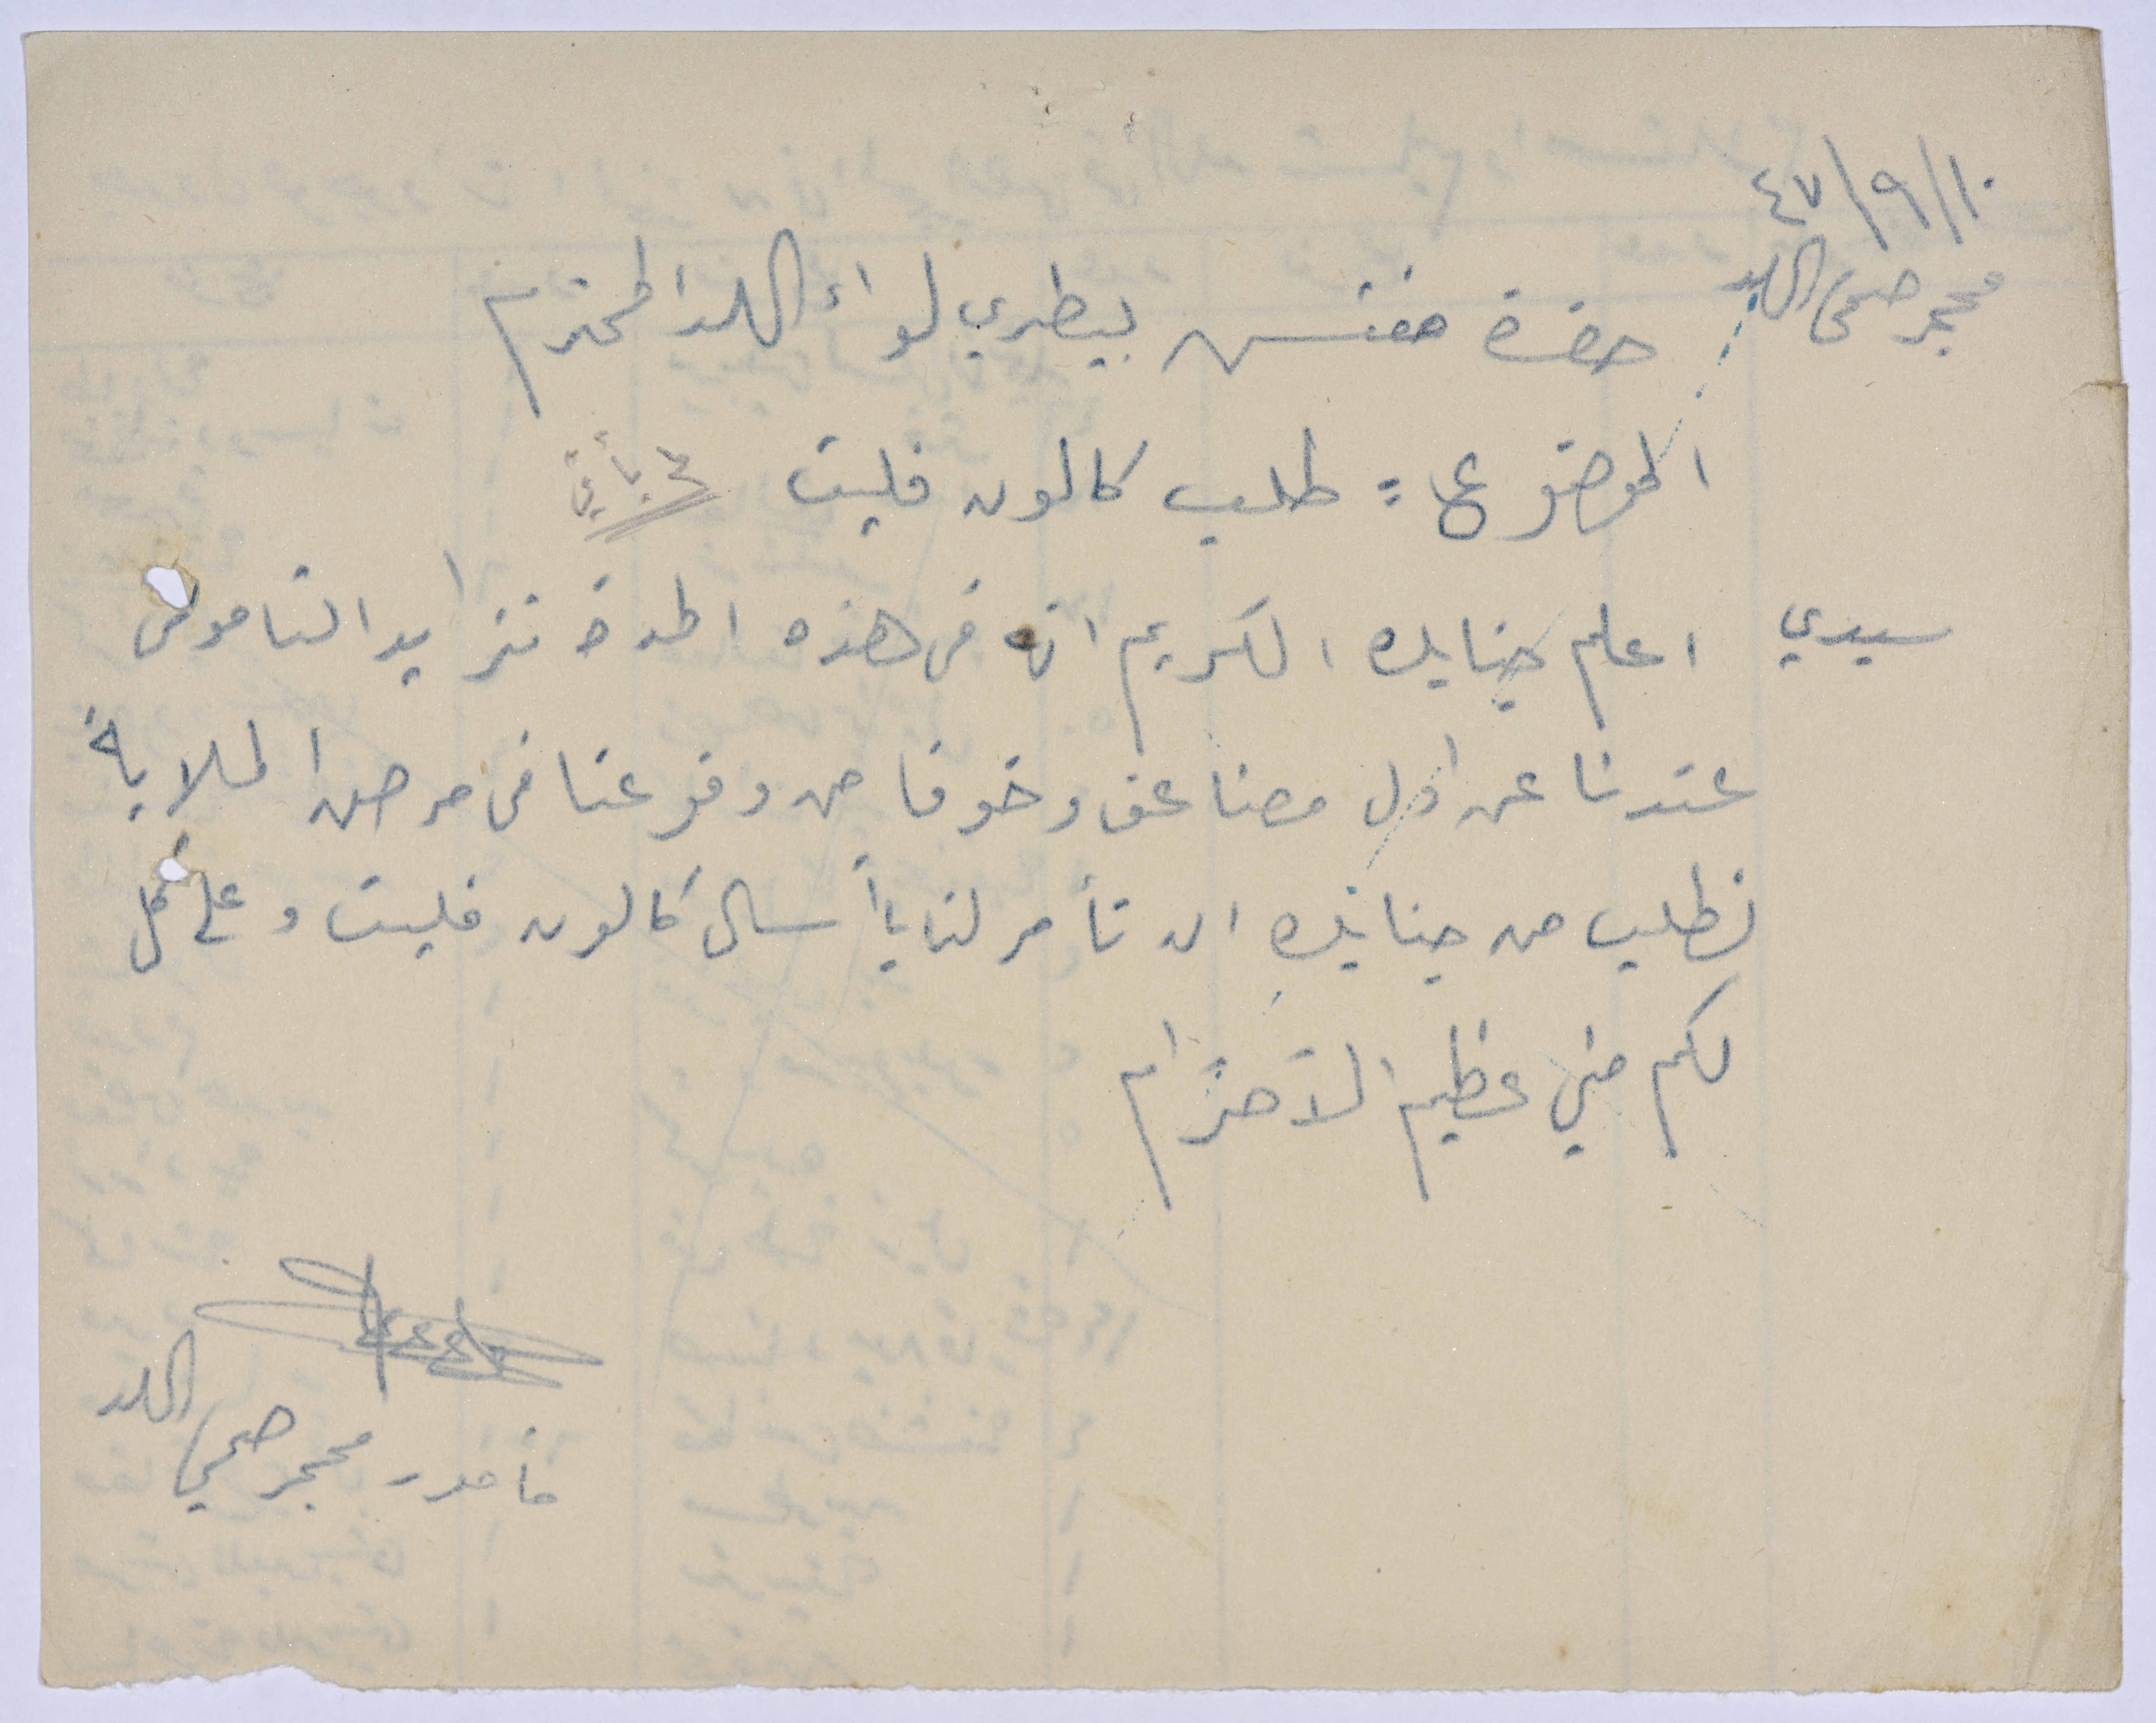 ١٠/٩/٤٧
محجر صحي اللد
حضرة مفتش بيطري لواء اللد المحترم
الموضوع = طلب كالون فليت
سيدي اعلم جنابك الكريم انه في هذه المدة تزايد الناموس
عندنا عن اول مضاعف وخوفا من وقوعنا في مرض الملاريا
نطلب من جنابك ان تأمر لنا بأرسال كالون فليت وعلى كل
لكم مني عظيم الآحترام
مأمور محجر صحي اللد